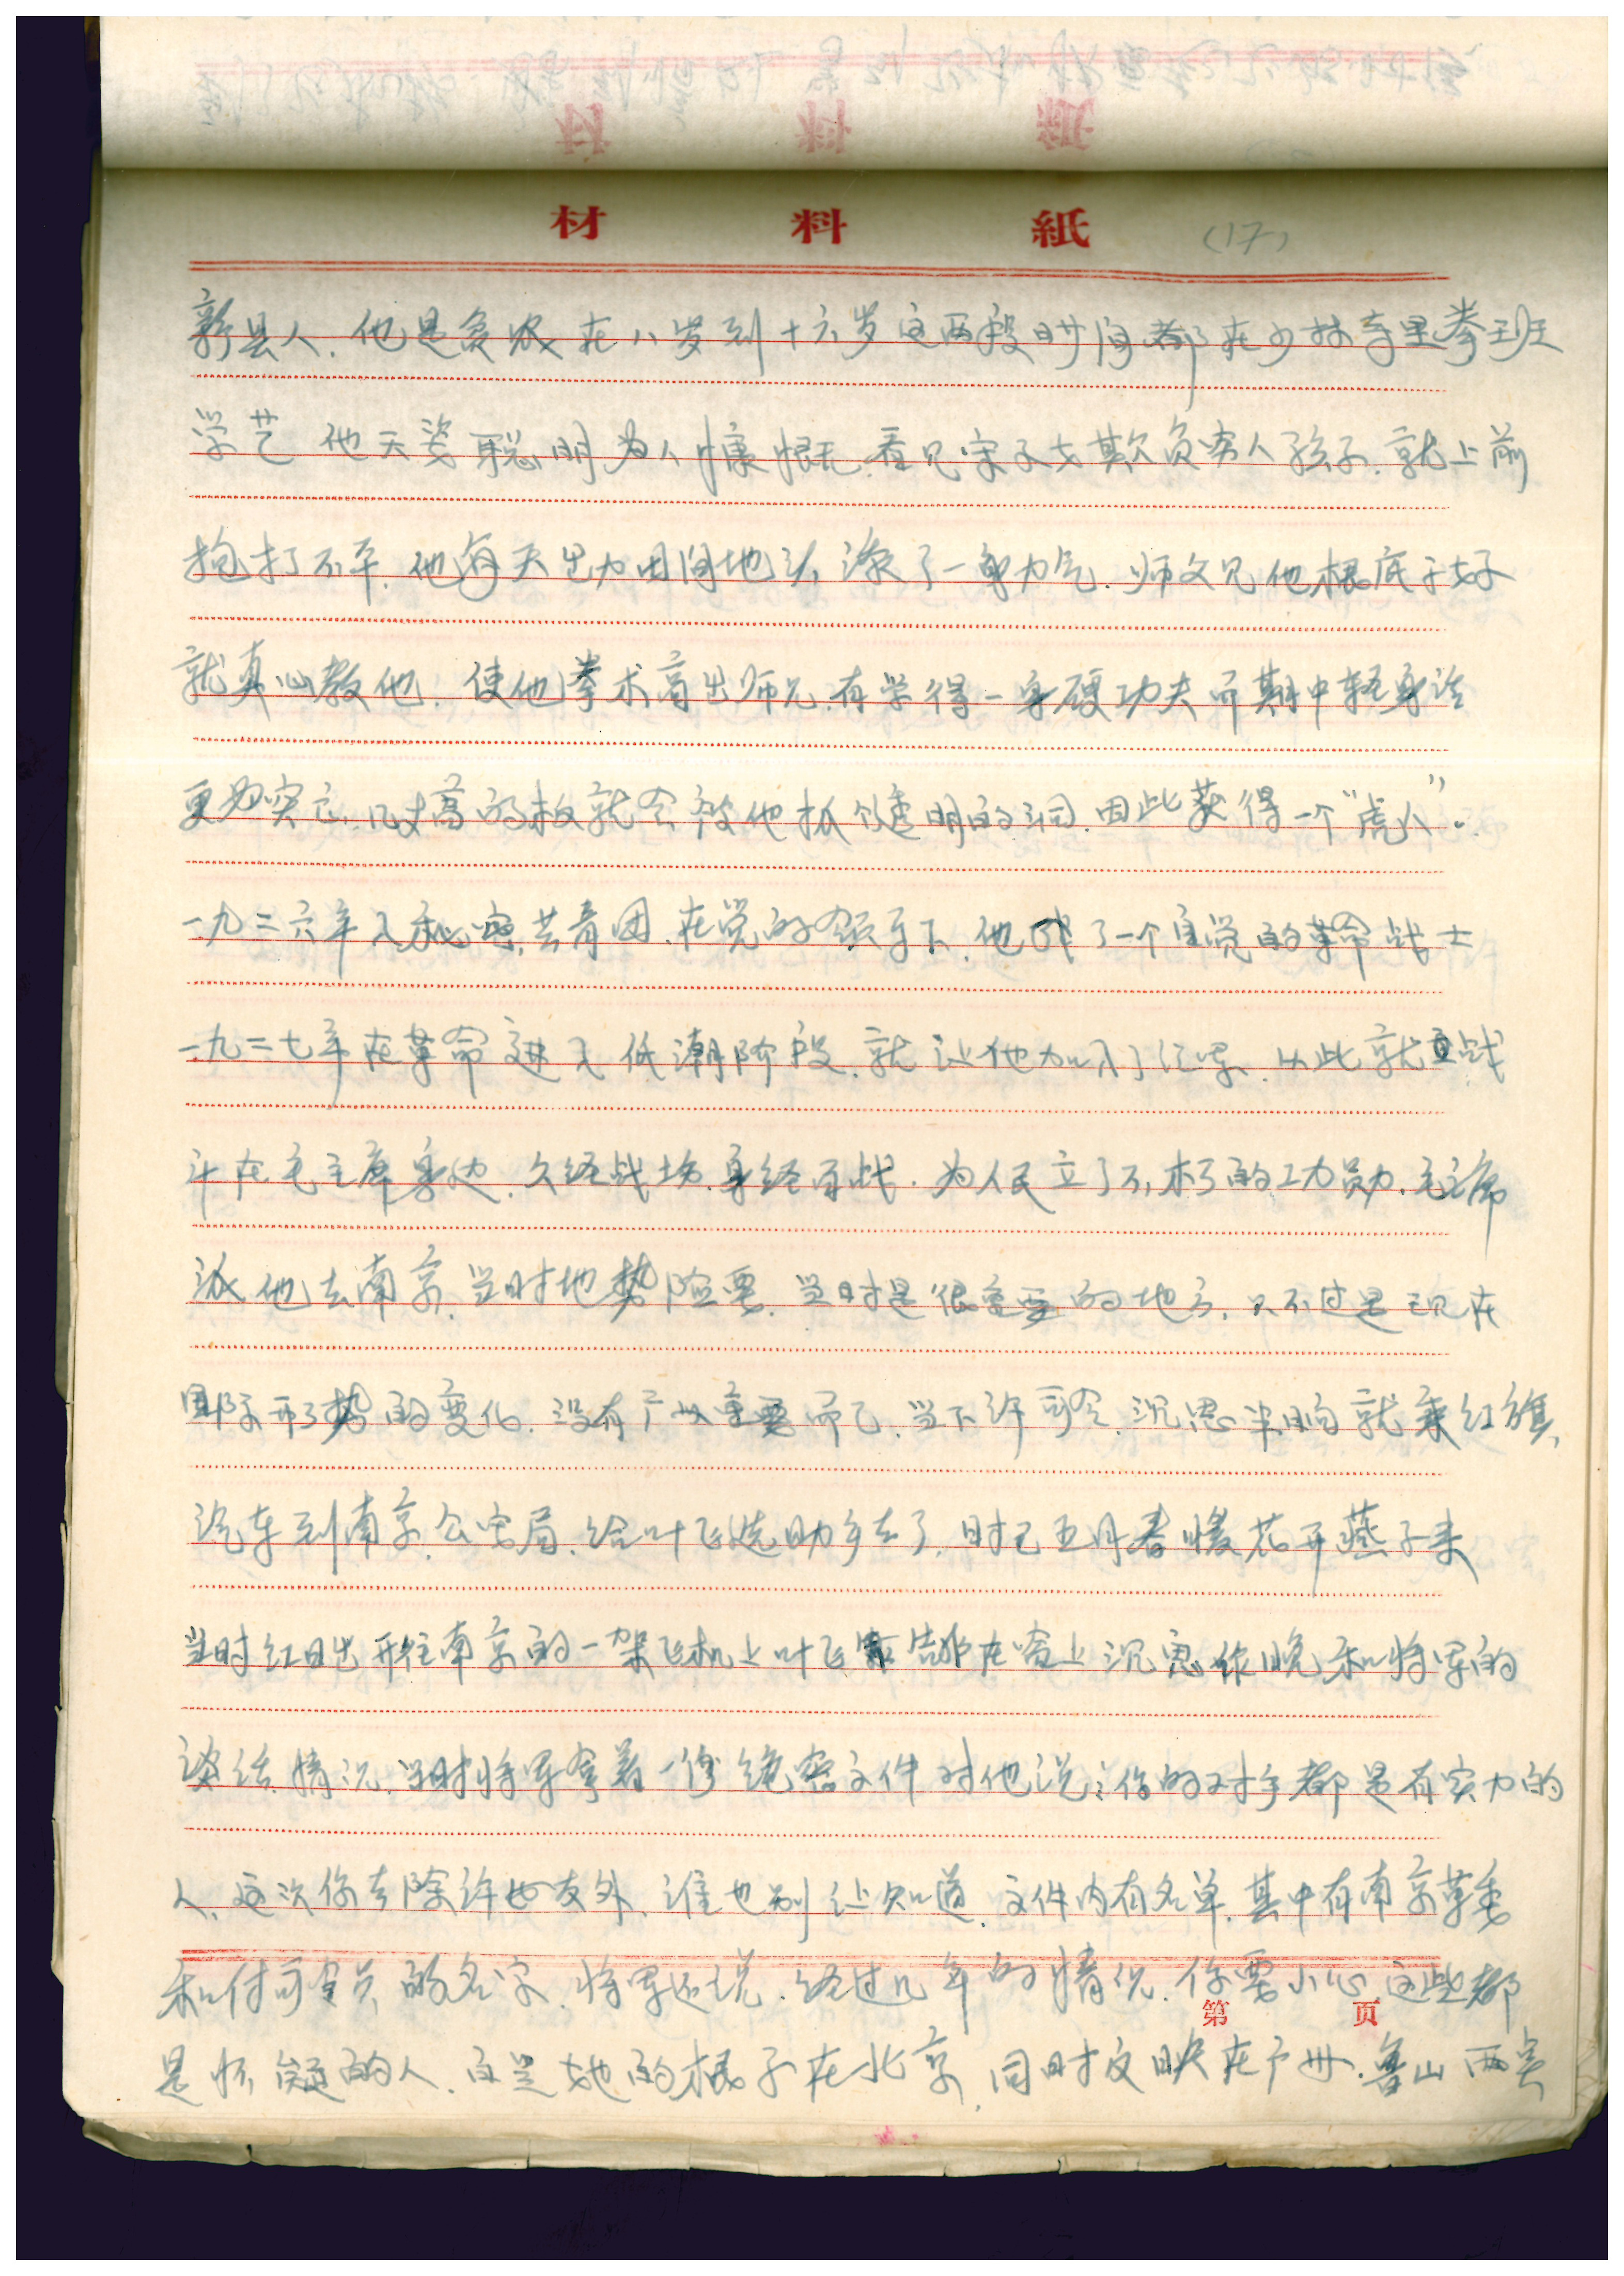 材料紙 (17)
新县人.他是贫农在八岁到十六岁这两段时间都在少林寺里拳班
学艺 他天姿聪明为人慷慨.看见宋子文欺负穷人孩子.就上前
抱打不平.他每天出力田间地头 涤了一身力气.师父见他根底子好
就真心教他.使他拳术高出师兄.有学得一身硬功夫而期中轻身法
更为突立.几丈高的板就会被他抓个透明的洞.因此获得一个“虎八”.
一九二六年入秘密.共青团.在党的领导下.他成了一个自觉的革命战士
一九二七年在革命进入低潮阶段.就让他加入了红军.从此就直战
斗在毛主席身边.久经战场.身经百战.为人民立了不朽的功勋.毛主席
派他去南京.当时地势险要.当时是很重要的地方.只不过是现在
国际形势的变化.没有广州重要而已.当下许司令.沉思半响就乘红旗.
汽车到南京.公安局.给叶飞选助手去了.时已五月春暖花开燕子来
当时红日出开往南京的一架飞机上叶飞靠在窗上沉思昨晚和将军的
谈话情况.当时将军拿着一份绝密文件对他说:你的对手都是有实力的
人.这次你去除许世友外.谁也别让知道.文件内有名单.其中有南京革委
和付司令员的名字.将军还说.经过几年的情况.你要小心.这些都
是怀疑的人.自是她的根子在北京.同时反映在广州.鲁山两宾
第 页